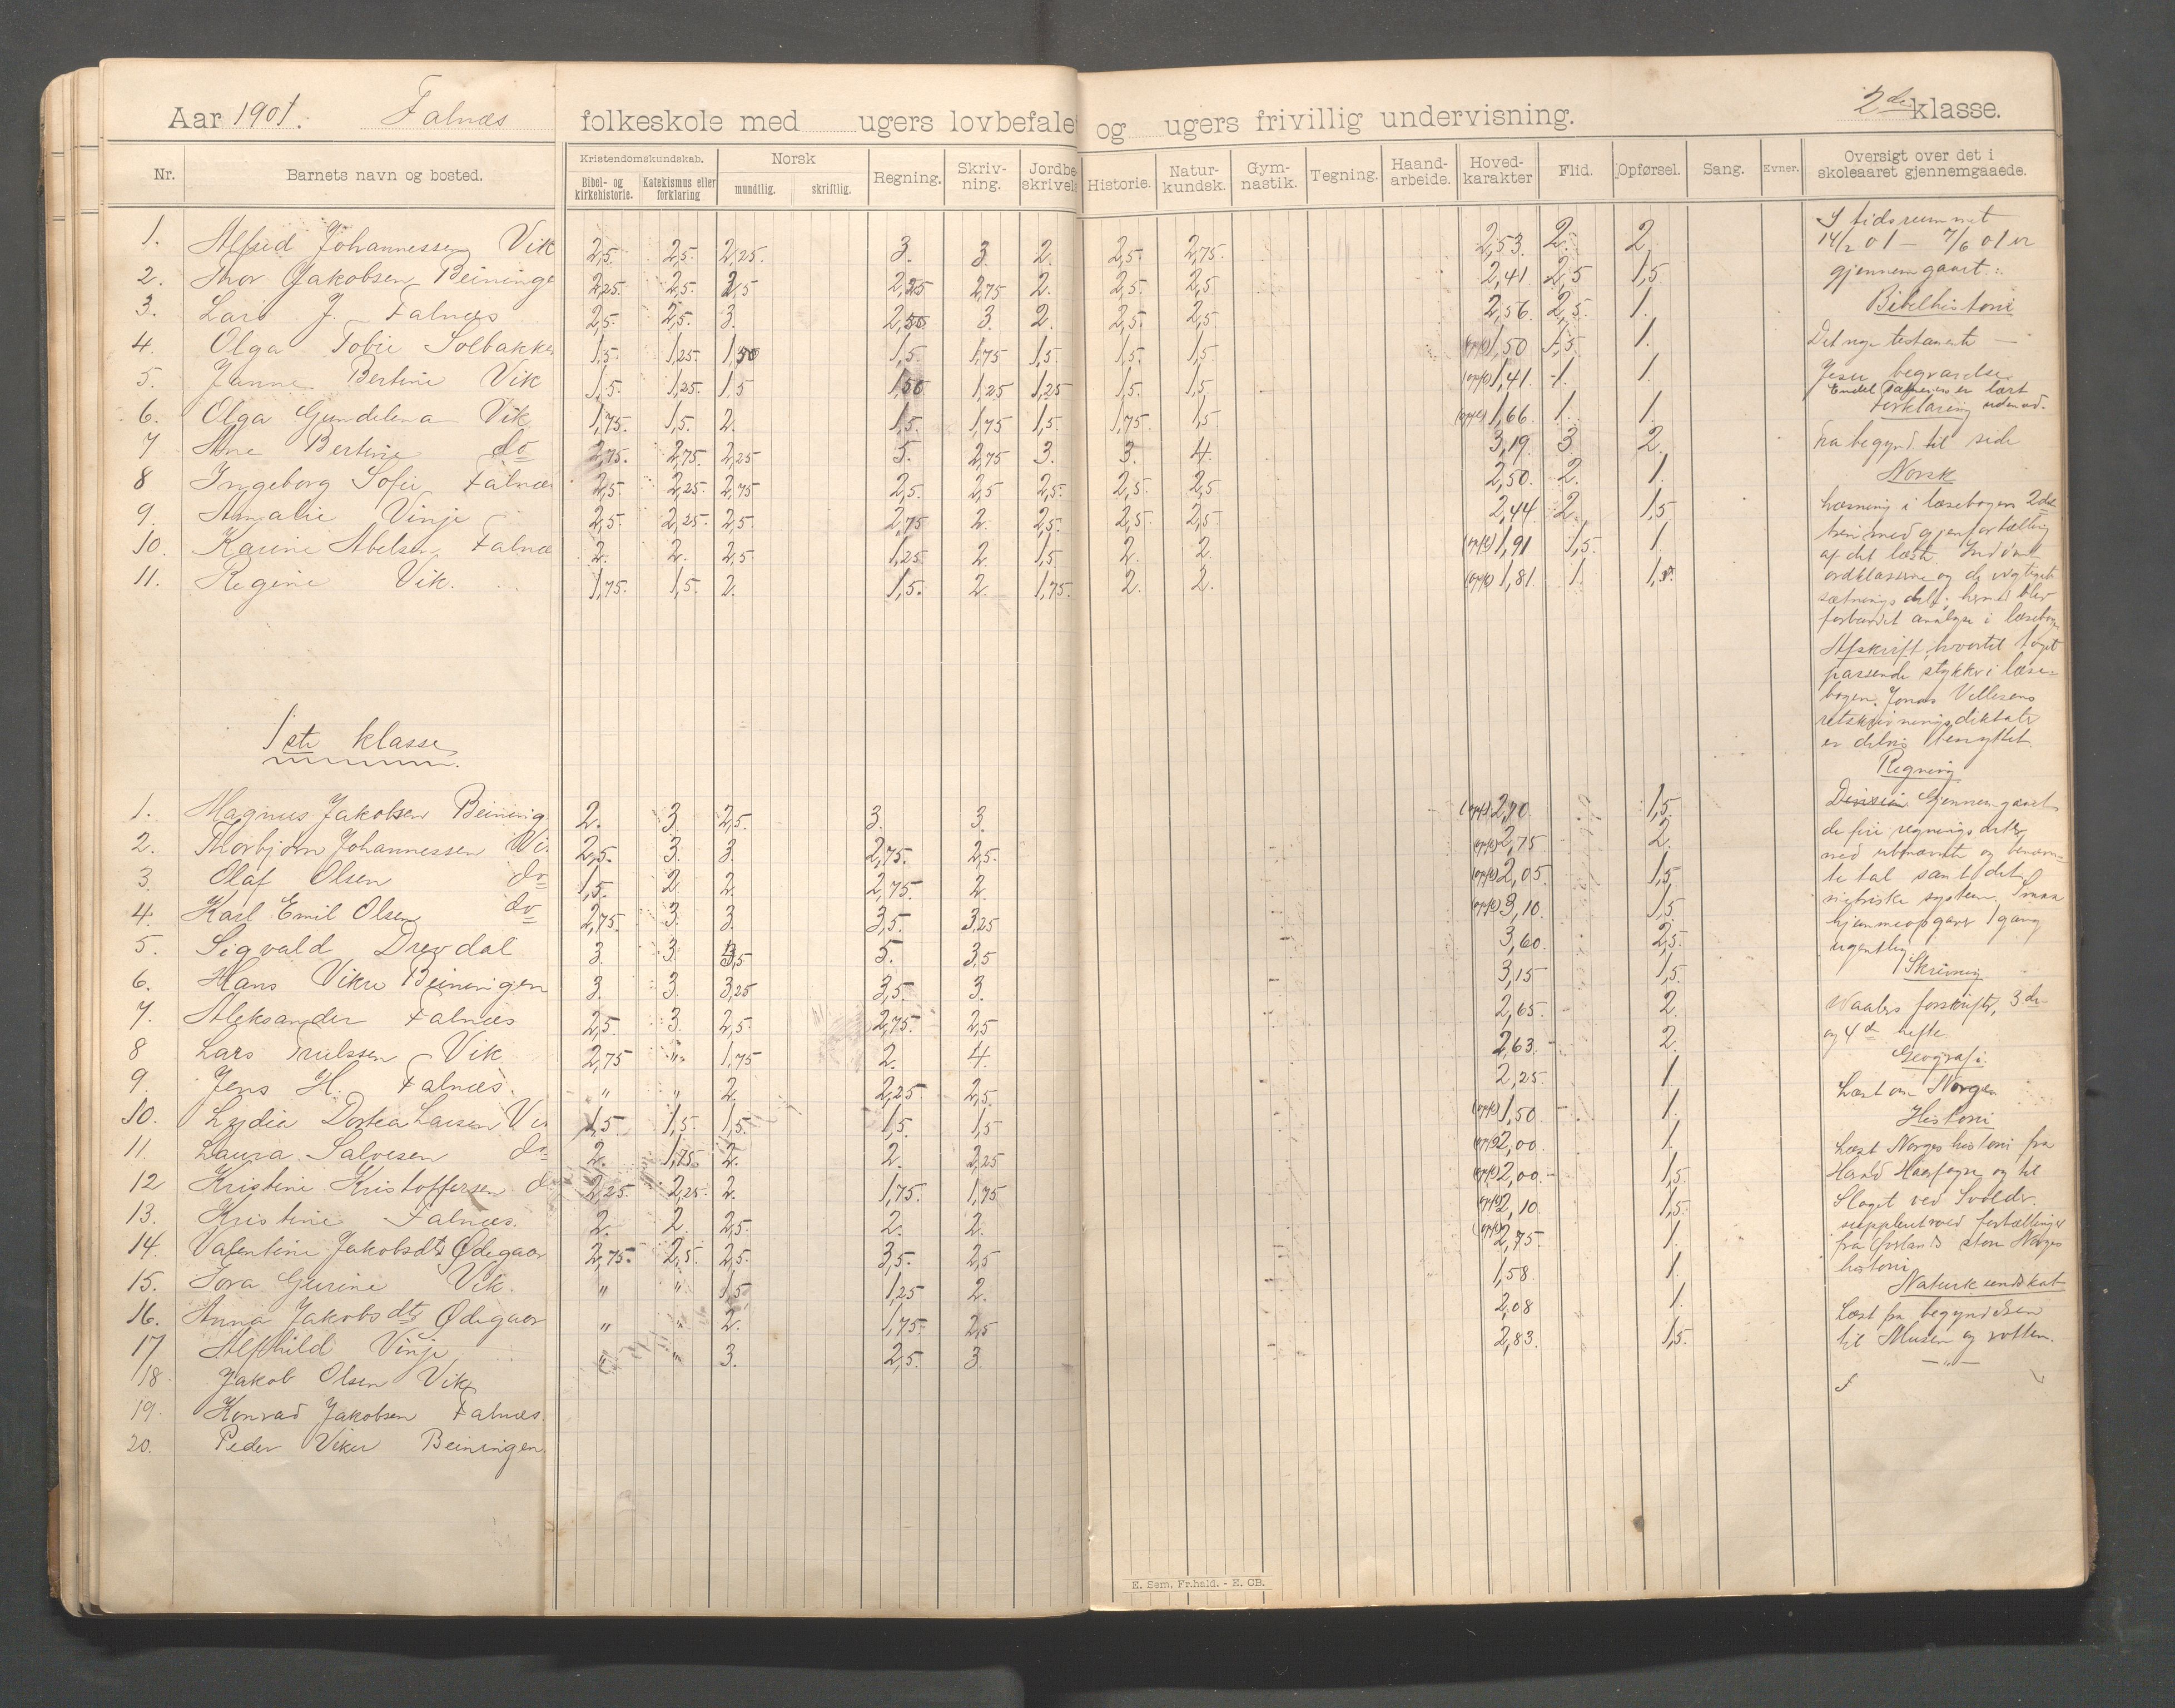 Aar 1901. Falnæs folkeskole med ugers lovbefale og ugers frivillig undervisning. 2den klasse.
Nr. Barnets navn og bosted. Kristendomskundskab. Bibel- og kirkehistorie. Katekismus eller forklaring Norsk mundtlig. skriftlig. Regning. Skriv-ning. Jordbe skrivels Historie. Natur-kundsk. Gym-nastik. Tegning. Haand-arbeide. Hoved-karakter Flid. Opførsel. Sang. Evner. Oversigt over det i skoleaaret gjennemgaaede.
1. Alfred Johannessen Vik 2,5. 2,5. 2,25. 3. 3. 2. 2,5. 2,75. 2,53. 2. 2.
2. Thor Jakobsen Beininge 2,25. 2,5. 2,5 2,25 2,75 2. 2,5. 2,5. 2,41 2,5 1,5
3. Lars J. Falnæs 2,5. 2,5. 3. 2,50 3. 2. 2,5. 2,5. 2,56. 2,5. 1.
4. Olga Tobie Solbakke 1,5. 1,25. 1,50 1,5. 1,75 1,5. 1,5. 1,5. (opf.) 1,50 1,5. 1.
5. Janne Bertine Vik 1,5. 1,25. 1,5 1,50 1,25 1,25 1,5. 1,5. (opf.) 1,41. 1. 1.
6. Olga Gundelena Vik 1,75. 1,5. 2. 1,5. 1,75 1,5. 1,75. 1,5 (opf.) 1,66. 1. 1.
7 Ane Bertine do 2,75. 2,75. 2,25 5. 2,75 3. 3. 4. 3,19. 3. 2.
8 Ingeborg Sofie Falnæs 2,5. 2,25. 2,75 2,5. 2,5 2,5. 2,5. 2,5. 2,50. 2. 1.
9. Amalie Vinje 2,5. 2,25. 2,5. 2,75 2. 2,5. 2,5. 2,5. 2,44 2. 1,5
10. Karine Abelsen Falnæ 2. 2. 2,5. 1,25 2. 1,5 2. 2. (opf.) 1,91 1,5. 1.
11. Regine Vik. 1,75. 1,5. 2. 1,5. 2. 1,75. 2. 2. (opf.) 1,81. 1.
1ste klasse
1. Magnus Jakobsen Beining 2. 3. 2,5. 3. 3. (opf.) 2,70. 1,5.
2. Thorbjørn Johannessen Vi 2,5. 3. 3. 2,75. 2,5. (opf.) 2,75. 2.
3. Olaf Olsen do 1,5. 2. 2. 2,75. 2. (opf.) 2,05. 1,5
4. Karl Emil Olsen do 2,75. 3. 3. 3,5. 3,25 (opf.) 3,10. 1,5.
5. Sigvald Drevdal 3. 3. 3,5 5. 3,5 3,60. 2,5.
6. Hans Vikre Beiningen 3. 3. 3,25 3,5. 3. 3,15 1,5.
7. Aleksander Falnæs 2,5. 3. 2,5. 2,75. 2,5 2,65. 2.
8 Lars Trulssen Vik 2,75 " 1,75 2. 4. 2,63. 2.
9. Jens H. Falnæs. " " 2. 2,25. 2,5. 2,25. 1.
10. Lydia Dortea Larsen Vi 1,5 1,5. 1,5. 1,5. 1,5 (opf.) 1,50 1.
11. Laura Salvesen do 2. 1,75. 2. 2. 2,25 (opf.) 2,00. 1.
12 Kristine Kristoffersen d 2,25. 2,25. 2. 1,75. 1,75 (opf.) 2,00. 1,5.
13. Kristine Falnæs. 2. 2. 2,5. 2. 2. (opf.) 2,10. 1,5.
14. Valentine Jakobsdtr Ødegaar 2,75. 2,5. 2,5. 3,5. 2,5 (opf.) 2,75. 1.
15. Tora Gurine Vik. " " 1,5 1,25 2. 1,58. 1.
16. Anna Jakobsdtr Ødegaar " " 2. 1,75. 2,5 2,08 1.
17 Alfhild Vinje " " 3. 2,5. 3. 2,83. 1,5.
18. Jakob Olsen Vik
19. Konrad Jakobsen Falnæs.
20. Peder Vikre Beiningen.
I tidsrummet
14/2 01 – 7/6 01 er
gjennemgaaet:
Bibelhistorie
Det nye testamente –
Jesu begravelse.
Endel salmer er lært
Forklaring udenad.
Fra begynd. til side
Norsk
Læsning i læsebogen 2det
trin med gjenfortælling
af det læste. Indøvet
ordklasserne og de vigtigste
sætningsdele; hermed blev
forbundet analyse i læsebogen
Afskrift, hvortil toges
passende stykker i læse-
bogen. Jonas Vellesens
retskrivningsdiktater
er delvis benyttet.
Regning
Gjennemgaaet
de fire regningsarter
med ubenævnte og benævn-
te tal samt det
metriske system. Smaa
hjemmeopgaver 1 gang
ugentlig
Skrivning
Waalers forskrifter, 3de
og 4de hefte
Geografi
Læst om Norge
Historie
Læst Norges historie fra
Harald Haarfagre og til
Slaget ved Svolder.
suppleret med fortællinger
fra store Norges
historie
Naturkundskab
Læst fra begyndelsen
til Musen og rotten.
– " –
E. Sem, Fr.hald. - E. CB.